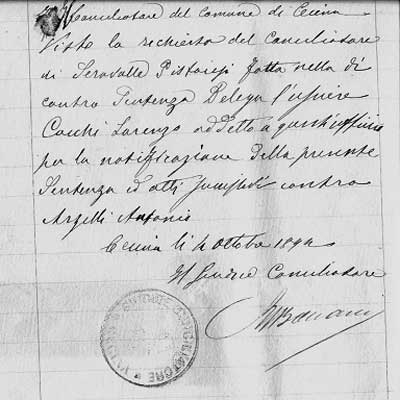 Il Conciliatore del Comune di Cecina
Visto la richiesta del Conciliatore
di Seravalle Pistoiesi fatta nella di
contro Sentenza Delega l'usciere
Cocchi Lorenzo addetto a quest'ufficio
per la notificazione della presente
Sentenza ed atti contro
Argelli Antonio
Cecina li 4 Ottobre 1892
Il Giudice Conciliatore
CONCILIATORE